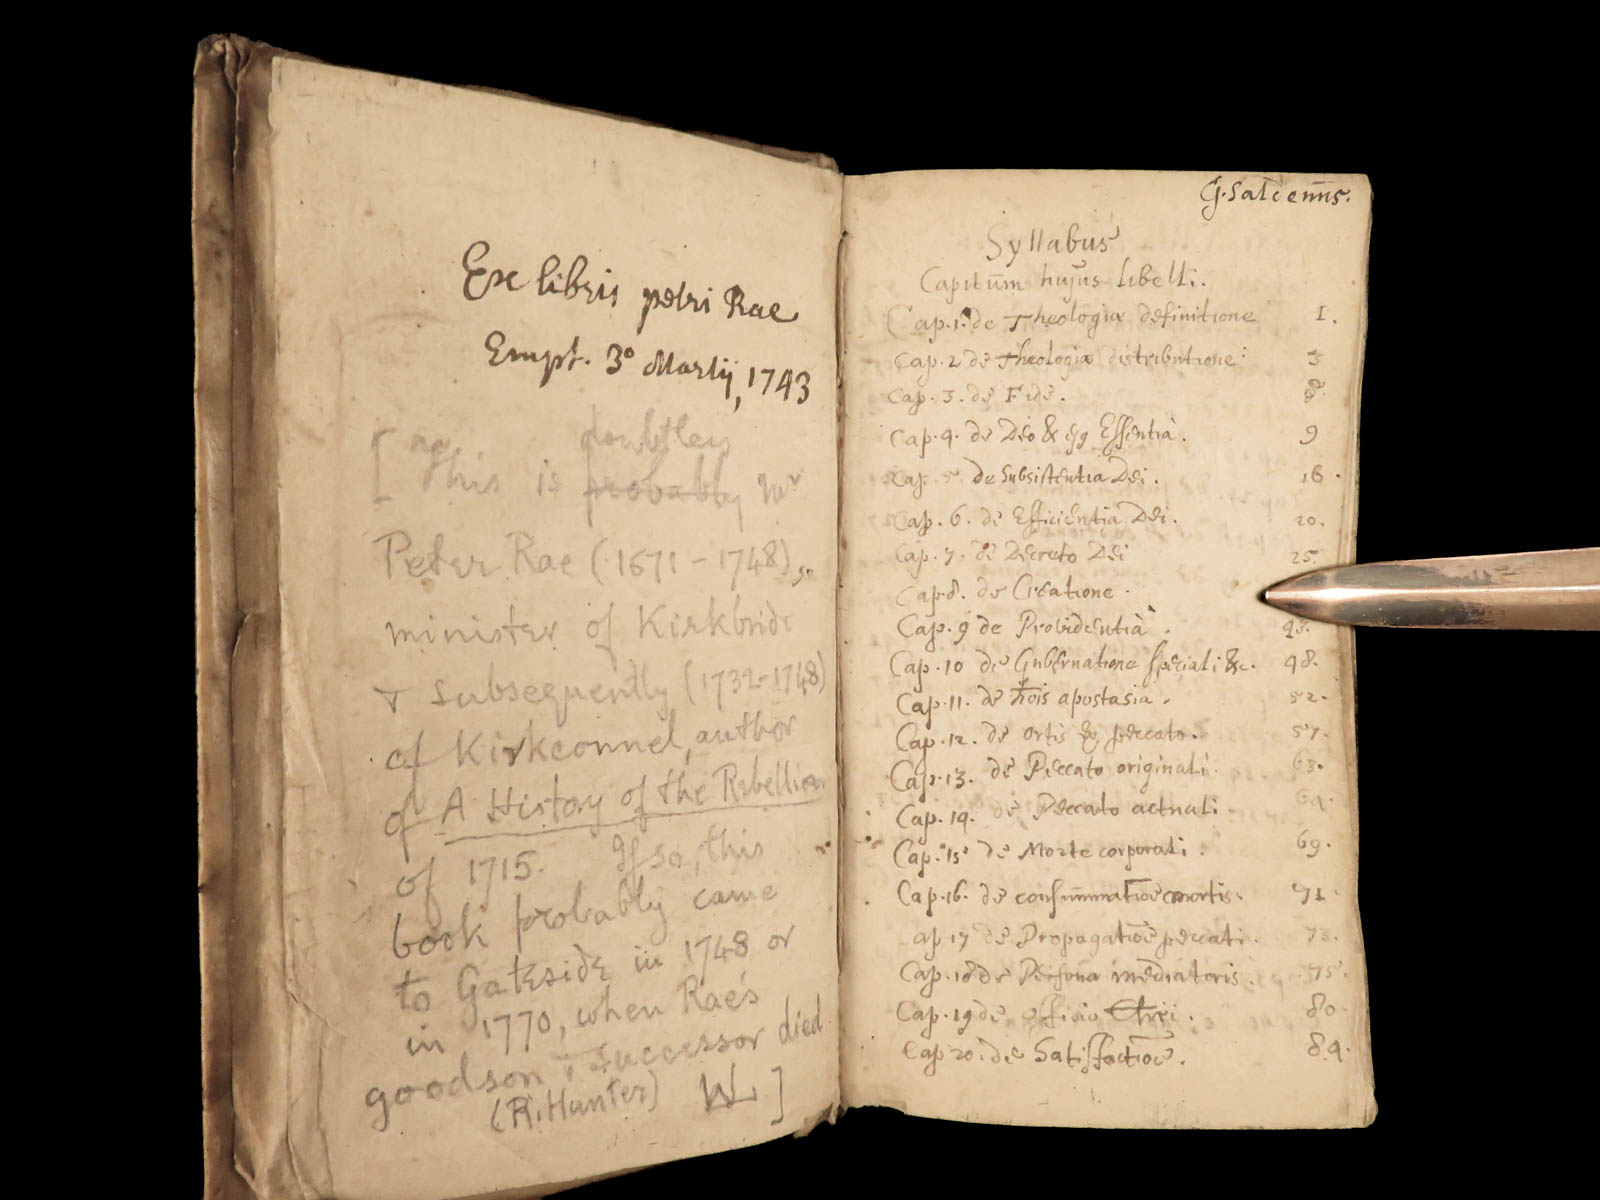 Ex libris petri Rae
Empt. 3º Martij, 1743
doubtless
[This is probably Mr
Peter Rae (1671-1748),
minister of Kirkbride
& subsequently (1732-1748)
of Kirkconnel, author
of A History of the Rebellion
of 1715. If so, this
book probably came
to Gateside in 1748 or
in 1770, when Rae's
goodson & successor died
(R. Hunter) W]
Syllabus
Capitūm hujus libelli.
Cap. 1. de Theologiæ definitione 1.
Cap. 2 de Theologiæ distributione 3
Cap. 3. de Fide. 8
Cap. 4. de Deo & ejq Essentiâ. 9
Cap. 5 de Subsistentia Dei. 16.
Cap. 6. de Efficientia Dei. 20.
Cap. 7. de Decreto Dei 25.
Cap. 8. de Creatione.
Cap. 9 de Providentiâ. 43.
Cap. 10 de Gubernatione speciali &c. 48.
Cap. 11. de hōis apostasia. 52.
Cap. 12. de ortis ex peccato. 57.
Cap. 13. de Peccato originali. 63.
Cap. 14. de Peccato actuali.
Cap. 15 de Morte corporali. 69.
Cap. 16. de consummatiōe mortis. 71.
Cap 17 de Propagatiōe peccati. 73.
Cap. 18 de Persona mediatoris. 75.
Cap. 19 de officio Chrī. 80.
Cap 20. de Satisfactiōe. 84.